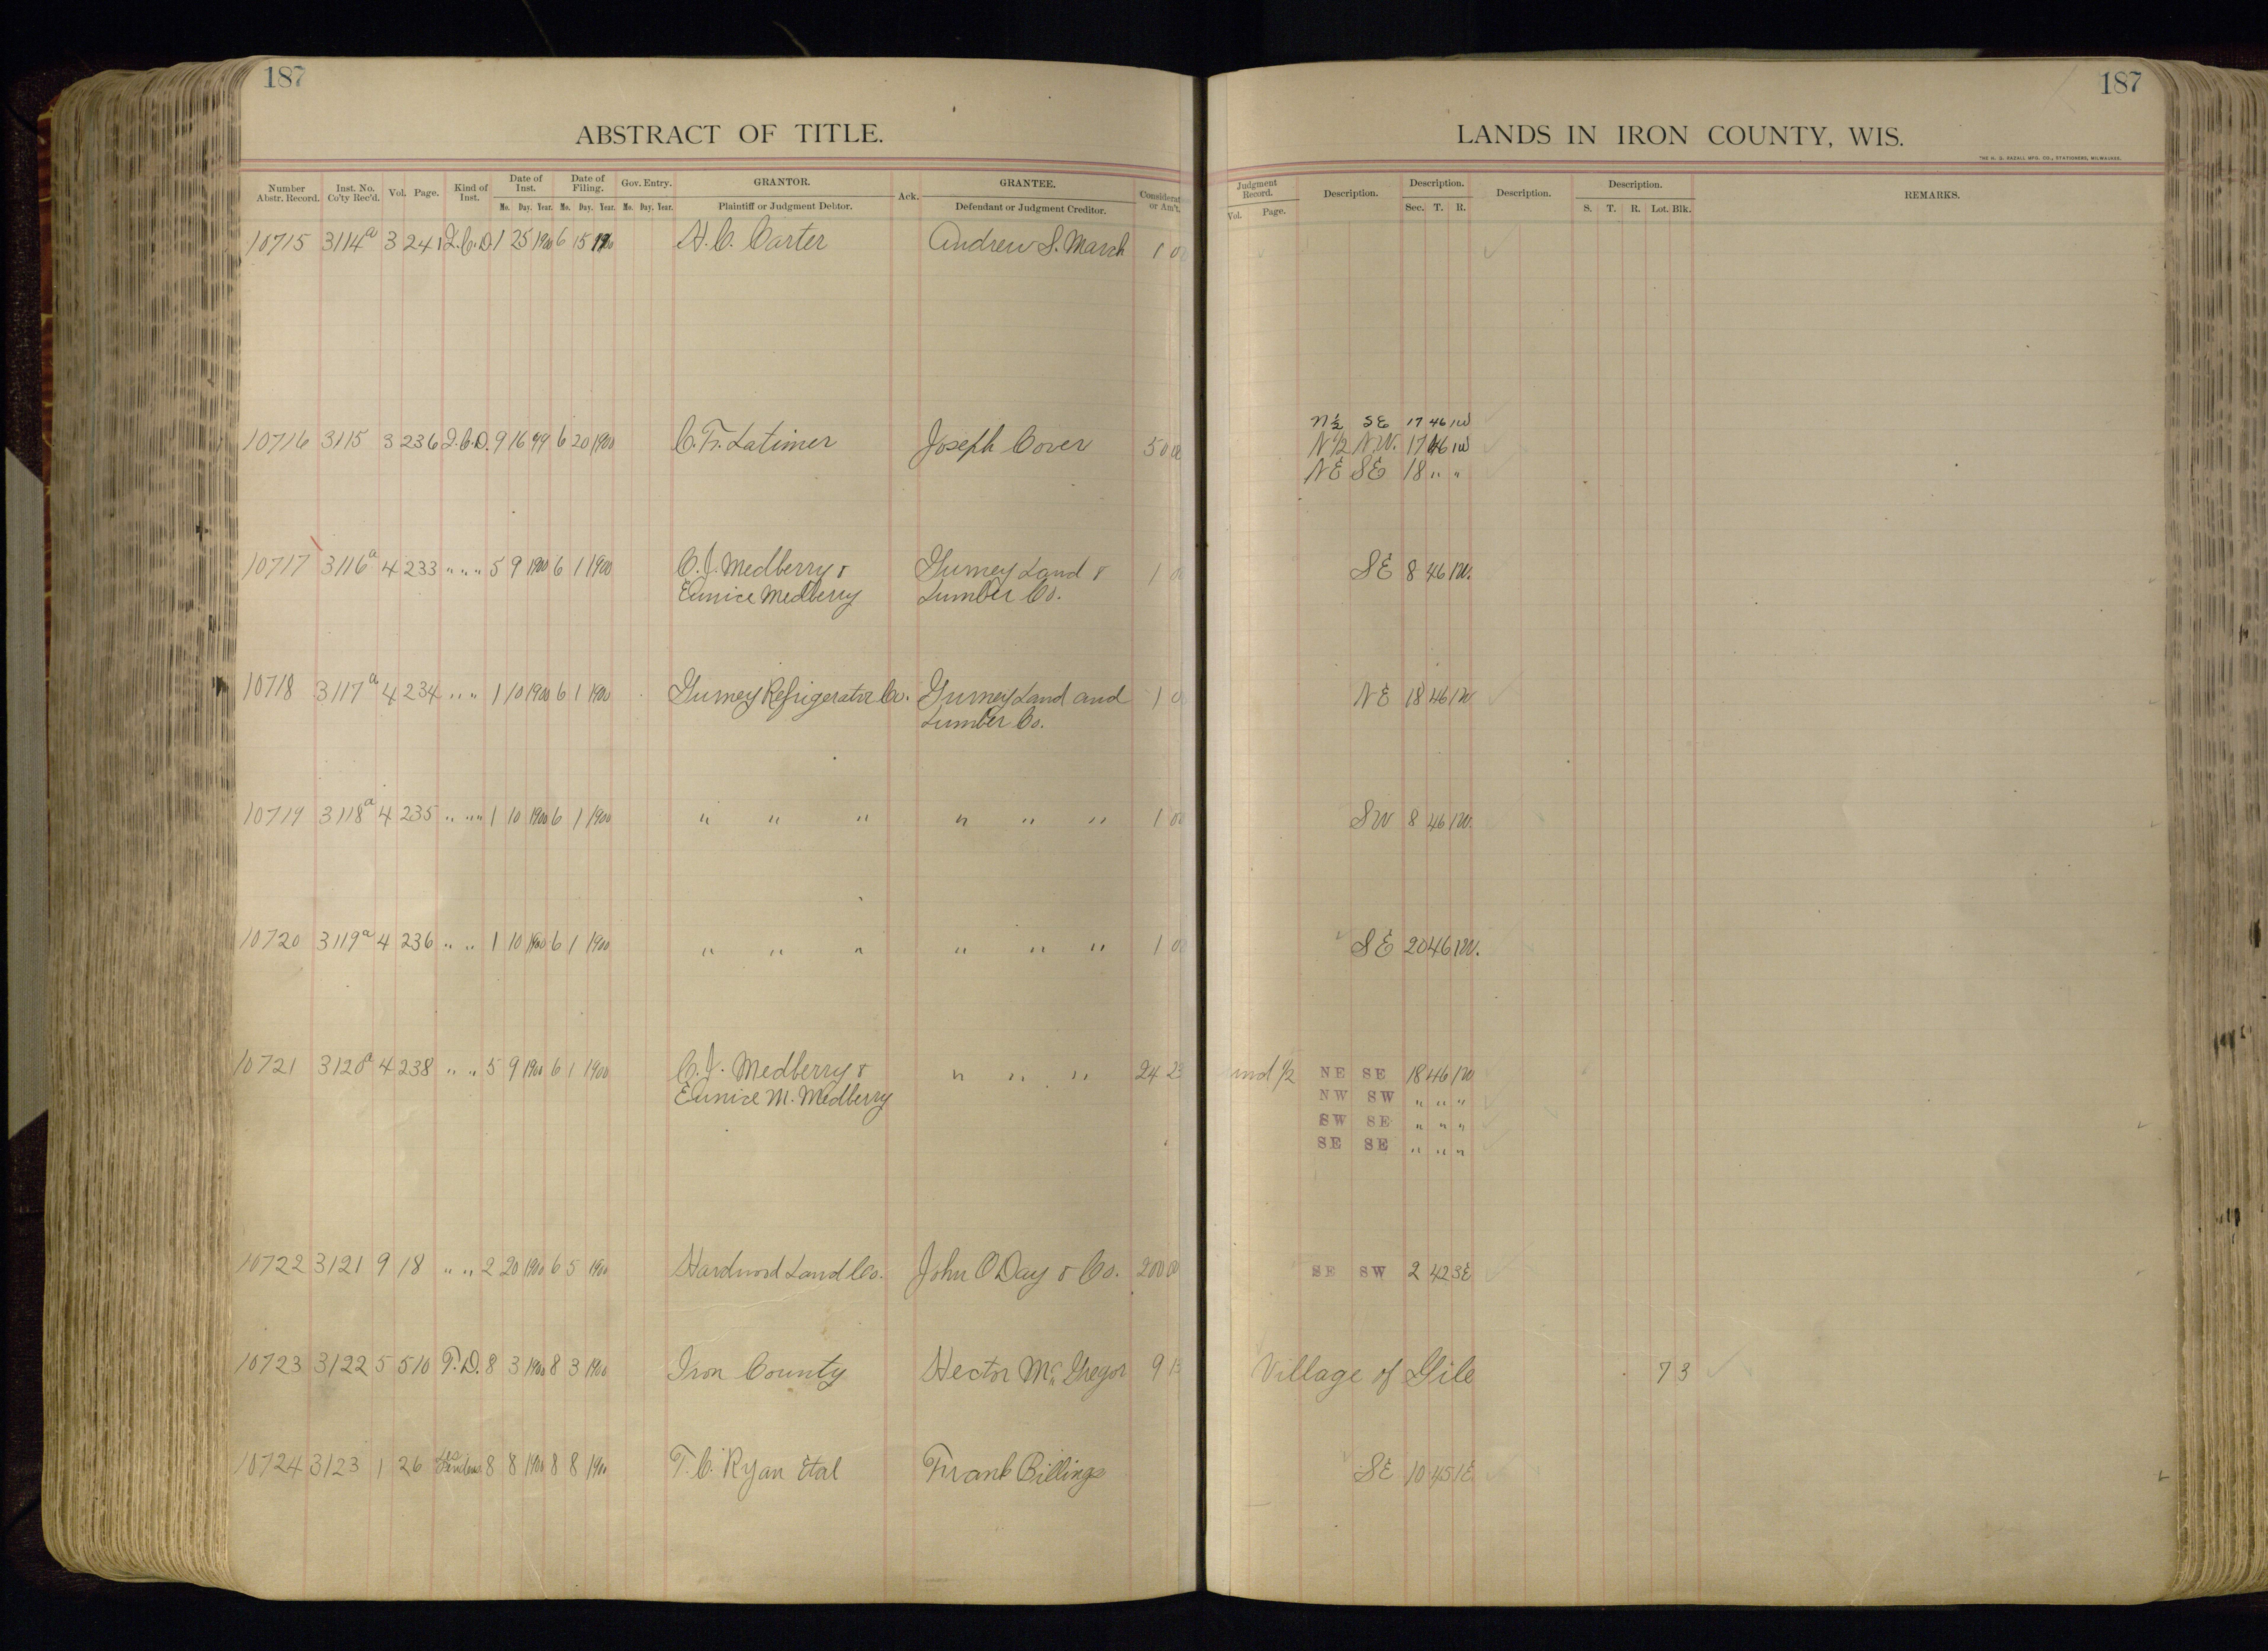 187
187
ABSTRACT OF TITLE.
LANDS IN IRON COUNTY, WIS.
THE H. G. RAZALL MFG. CO., STATIONERS, MILWAUKEE.
Number Abstr. Record. Inst. No. Co'ty Rec'd. Vol. Page. Kind of Inst. Date of Inst. Mo. Day. Year. Date of Filing. Mo. Day. Year. Gov. Entry. Mo. Day. Year. GRANTOR. Plaintiff or Judgment Debtor. Ack. GRANTEE. Defendant or Judgment Creditor. Considerat or Am't.
Judgment Record. Vol. Page. Description. Description. Sec. T. R. Description. Description. S. T. R. Lot. Blk. REMARKS.
10715 3114a 3 241 Q.C.D. 1 25 1900 6 15 1900 H. C. Carter Andrew S. March 1 00
N ½ SE 17 46 1W
10716 3115 3 236 Q.C.D. 9 16 99 6 20 1900 C. F. Latimer Joseph Cover 50 00 N ½ N.W. 17 46 1W
NE SE 18 " "
10717 3116a 4 233 " " " 5 9 1900 6 1 1900 C. J. Medberry & Gurney Land & 1 00 SE 8 46 1W.
Eunice Medberry Lumber Co.
10718 3117a 4 234 " " " 1 10 1900 6 1 1900 Gurney Refrigerator Co. Gurney Land and 1 00 NE 18 46 1W
Lumber Co.
10719 3118a 4 235 " " " 1 10 1900 6 1 1900 " " " " " " 1 00 SW 8 46 1W.
10720 3119a 4 236 " " 1 10 1900 6 1 1900 " " " " " " 1 00 SE 20 46 1W.
10721 3120a 4 238 " " 5 9 1900 6 1 1900 C. J. Medberry & " " " 24 23 und ½ NE SE 18 46 1W
Eunice M. Medberry NW SW " " "
SW SE " " "
SE SE " " "
10722 3121 9 18 " " 2 20 1900 6 5 1900 Hardwood Land Co. John O Day & Co. 200 00 SE SW 2 42 3E
10723 3122 5 510 T.D. 8 3 1900 8 3 1900 Iron County Hector McGregor 9 13 Village of Gile 7 3
10724 3123 1 26 Lis Pendens 8 8 1900 8 8 1900 T. C. Ryan Etal Frank Billings SE 10 45 1E